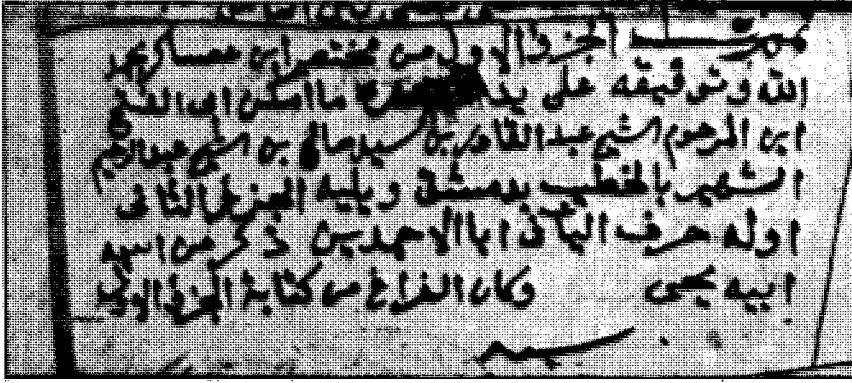 تم الجزء الاول من مختصر ابن عساكر بحمد
الله وتوفيقه على يد ما امكن ابى الفتح
ابن المرحوم الشيخ عبد القادر بن السيد صالح بن الشيخ عبد الرحيم
الشهير بالخطيب بدمشق ويليه الجزء الثانى
اوله حرف الياء فى ابا الاحمدين ذكر من اسم
ابيه يحيى وكان الفراغ من كتابة الجزء الاول